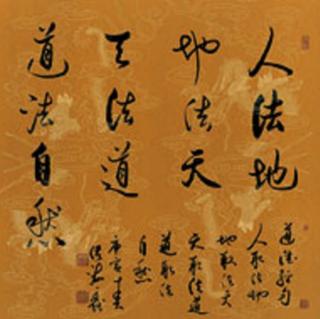 人法地
地法天
天法道
道法自然
道德经句
人取法地
地取法天
天取法道
道取法
自然